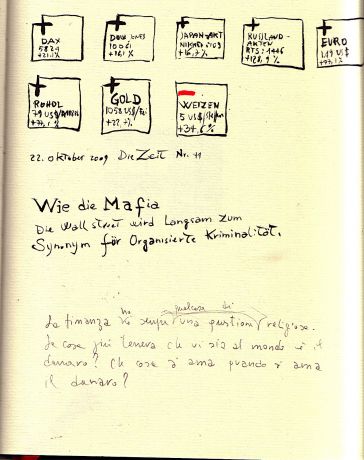 DAX
5824
+21,1%
DOW JONES
10061
+16,1 %
JAPAN-AKT
NIKKEI:
RUSSLAND-
AKTEN
RTS: 1446
+128,9 %
EURO
1,49 US$
ROHÖL
79 US$/
GOLD
1058 US$/
WEIZEN
5 US$/
22. oktober 2009 Die Zeit Nr. 44
Wie die Mafia
Die Wall street wird Langsam zum
Synonym för Organisierte Kriminalität.
qualcosa di
La finanza ha sempre una religiosa.
La cosa più tenera che vi sia al mondo è il
danaro? Che cosa si ama quando si ama
il danaro?